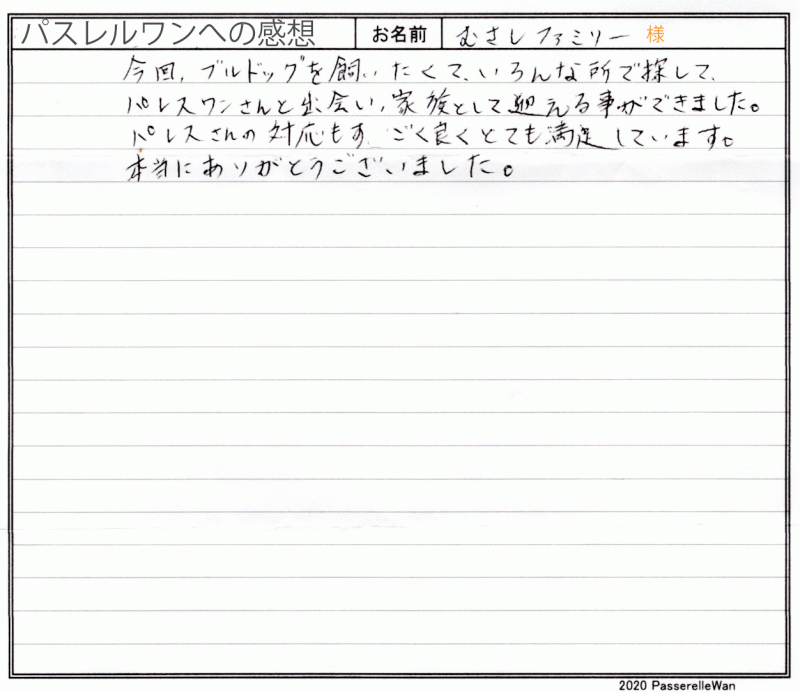 パスレルワンへの感想 お名前 むさしファミリー 様
今回、ブルドッグを飼いたくて、いろんな所で探して、
パレスワンさんと出会い、家族として迎える事ができました。
パレスさんの対応もすごく良くとても満足しています。
本当にありがとうございました。
2020 PasserelleWan